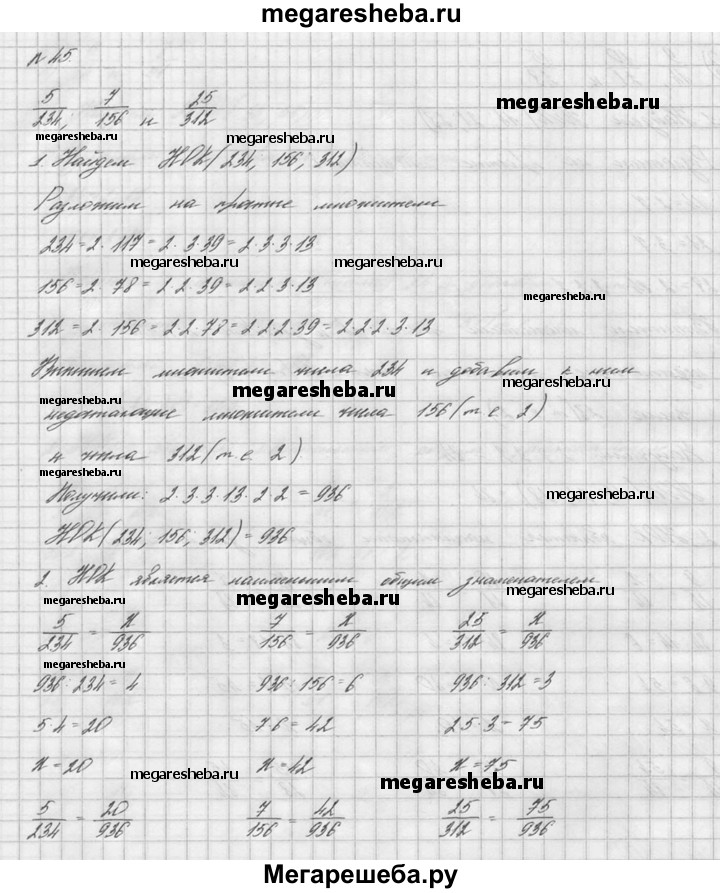 megaresheba.ru
n 45.
5/234; 7/156 и 25/312
megaresheba.ru
megaresheba.ru megaresheba.ru
1. Найдем НОК(234, 156; 312)
Разложим на простые множители
234 = 2 · 117 = 2 · 3 · 39 = 2 · 3 · 3 · 13
megaresheba.ru megaresheba.ru
156 = 2 · 78 = 2 · 2 · 39 = 2 · 2 · 3 · 13
megaresheba.ru
312 = 2 · 156 = 2 · 2 · 78 = 2 · 2 · 2 · 39 = 2 · 2 · 2 · 3 · 13
Выпишем множители числа 234 и добавим к ним
megaresheba.ru megaresheba.ru
недостающие множители числа 156 (т.е. 2)
и числа 312 (т.е. 2)
megaresheba.ru
Получили: 2 · 3 · 3 · 13 · 2 · 2 = 936
megaresheba.ru
НОК(234; 156; 312) = 936
2. НОК является наименьшим общим знаменателем
megaresheba.ru megaresheba.ru
5/234 = x/936 7/156 = x/936 25/312 = x/936
megaresheba.ru
936 : 234 = 4 936 : 156 = 6 936 : 312 = 3
5 · 4 = 20 7 · 6 = 42 25 · 3 = 75
x = 20 x = 42 x = 75
megaresheba.ru megaresheba.ru
5/234 = 20/936 7/156 = 42/936 25/312 = 75/936
Мегарешеба.ру